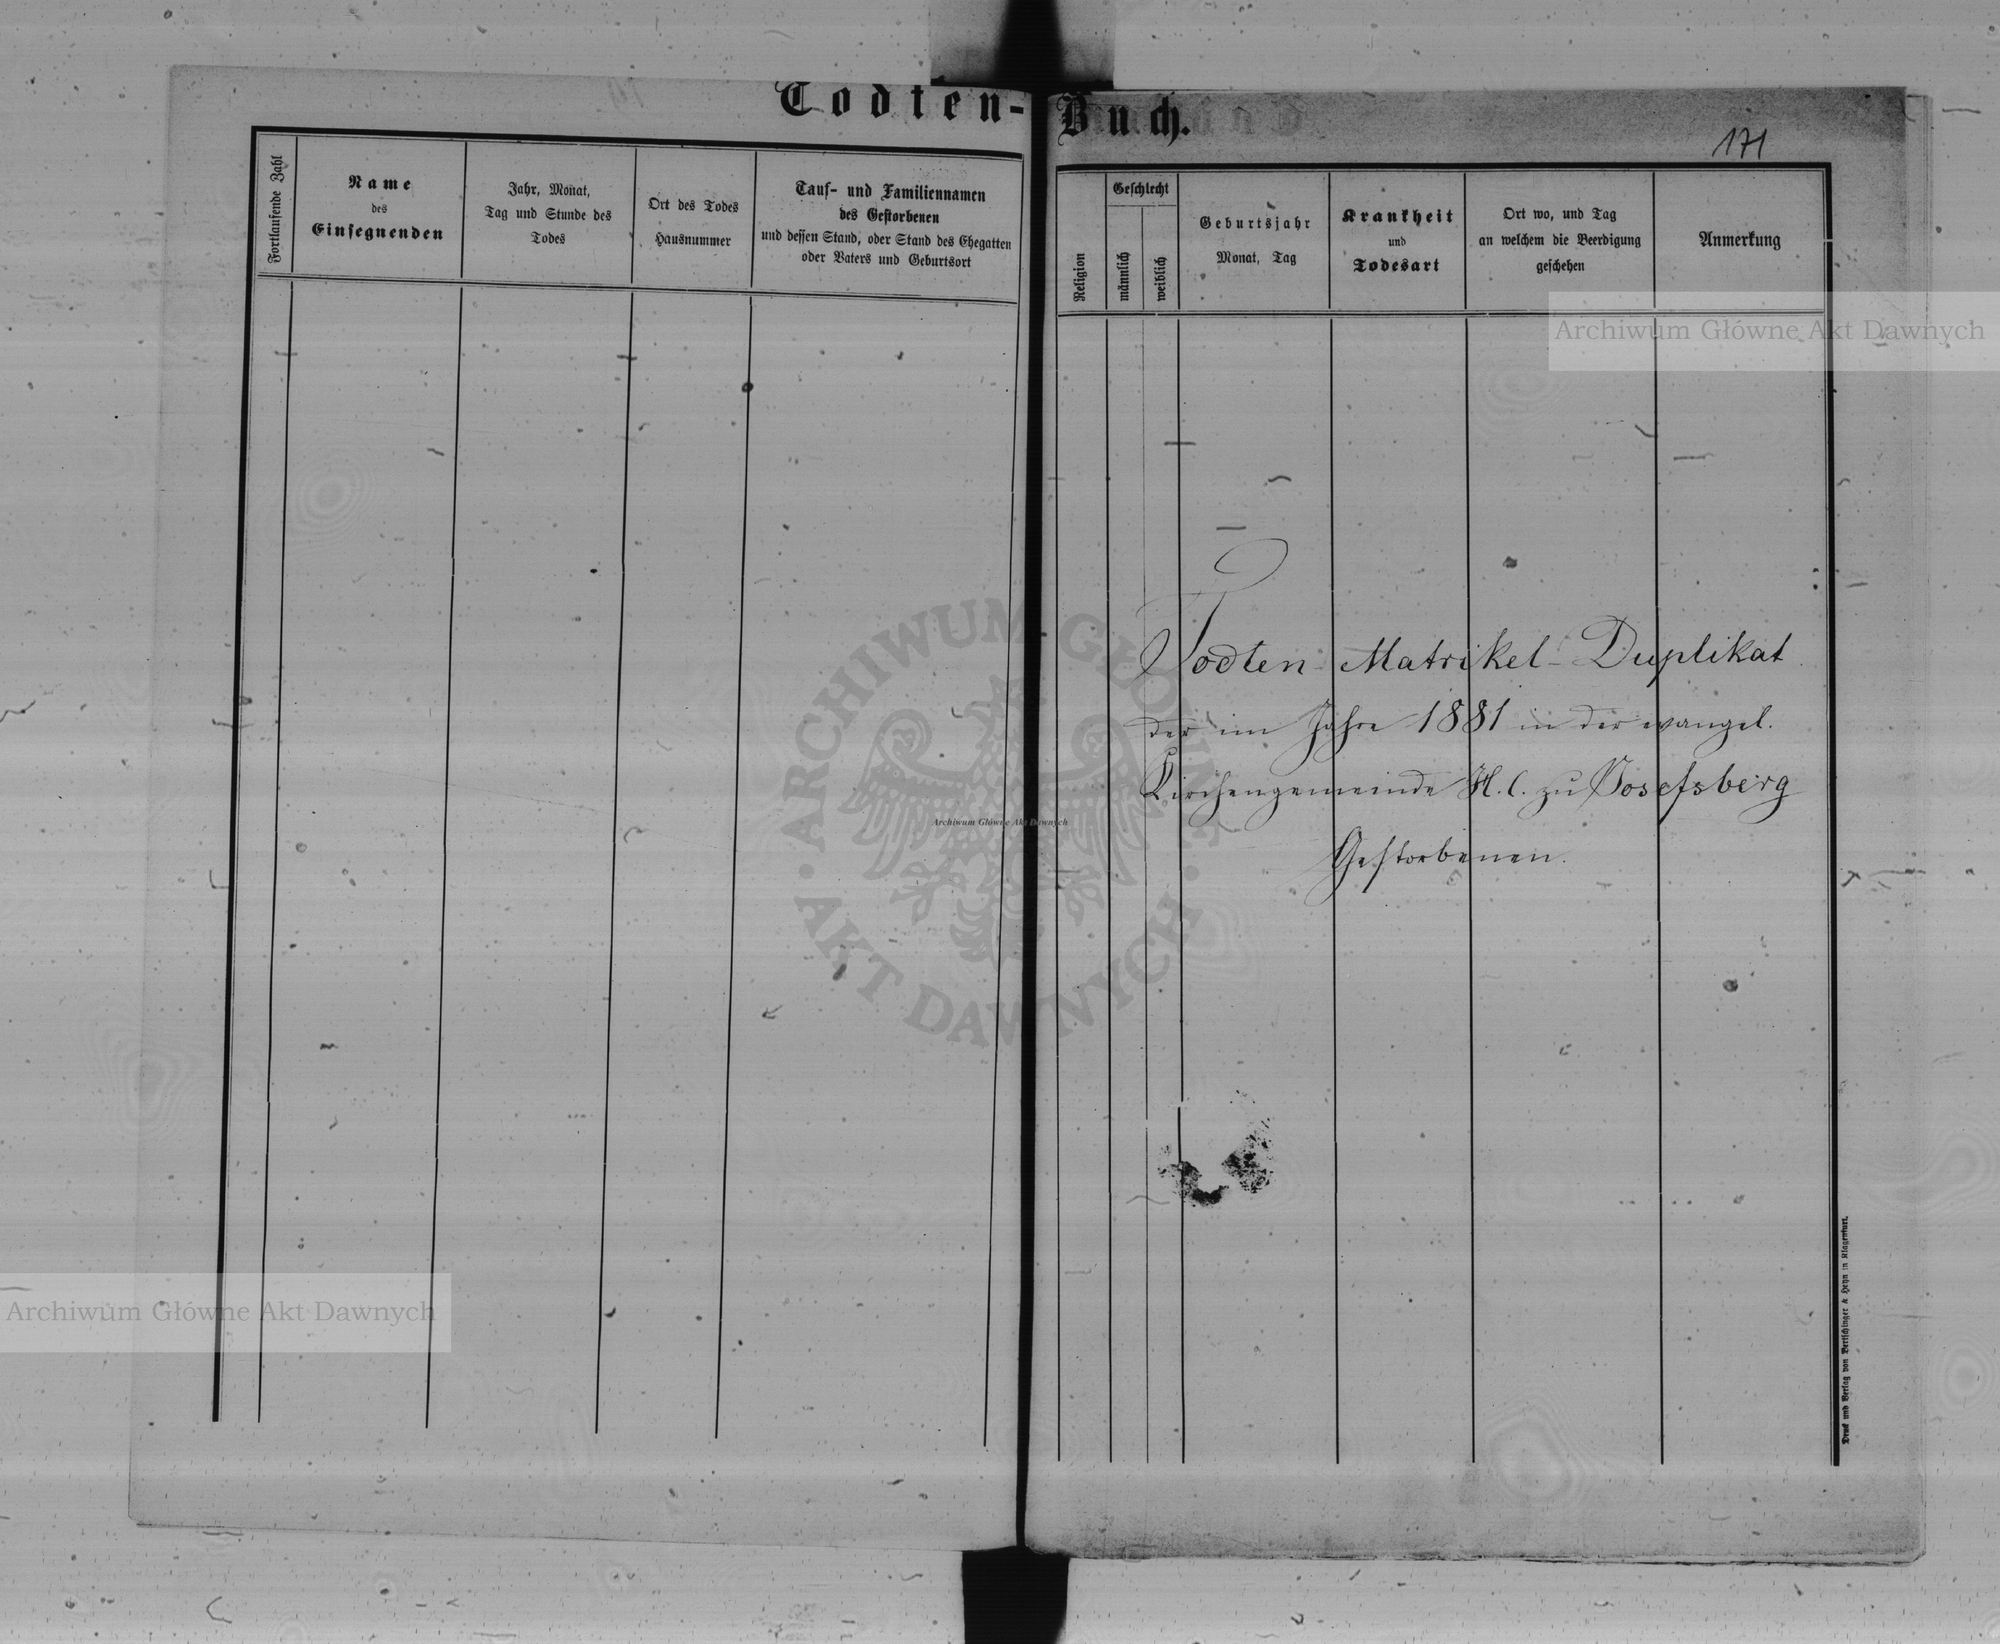 Todten-Buch.
171
Fortlaufende Zahl
Name
des
Einsegnenden
Jahr, Monat,
Tag und Stunde des
Todes
Ort des Todes
Hausnummer
Tauf- und Familiennamen
des Gestorbenen
und dessen Stand, oder Stand des Ehegatten
oder Vaters und Geburtsort
Religion
Geschlecht
männlich
weiblich
Geburtsjahr
Monat, Tag
Krankheit
und
Todesart
Ort wo, und Tag
an welchem die Beerdigung
geschehen
Anmerkung
Archiwum Główne Akt Dawnych
Todten-Matrikel-Duplikat
der im Jahre 1881 in der evangel.
Kirchengemeinde H. C. zu Josefsberg
Gestorbenen.
ARCHIWUM GŁÓWNE
AKT DAWNYCH
Archiwum Główne Akt Dawnych
Archiwum Główne Akt Dawnych
Druck und Verlag von Bertschinger & Heyn in Klagenfurt.